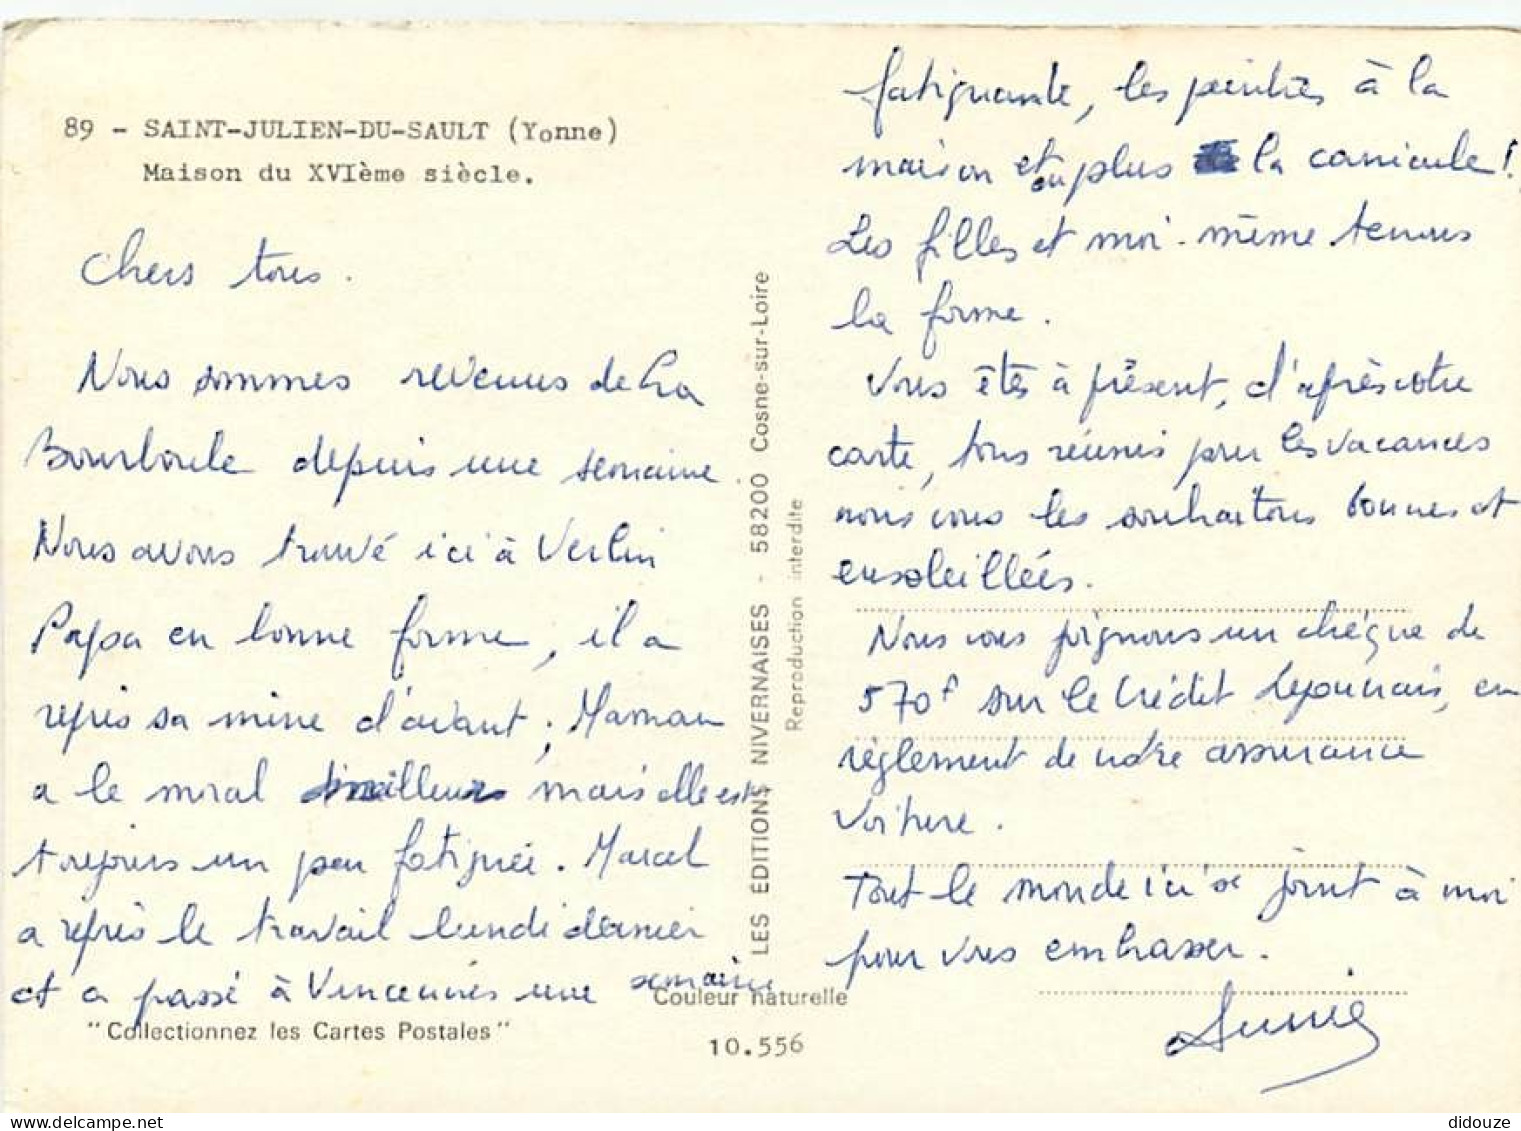 89 - SAINT-JULIEN-DU-SAULT (Yonne)
Maison du XVIème siècle.
Chers tous.
Nous sommes revenus de La
Bourboule depuis une semaine
Nous avons trouvé ici à Verlin
Papa en bonne forme, il a
repris sa mine d'avant ; Maman
a le moral meilleur mais elle est
toujours un peu fatiguée. Marcel
a repris le travail lundi dernier
et a passé à Vincennes une semaine
fatiguante, les peintres à la
maison et en plus la canicule !
Les filles et moi-même tenons
la forme.
Vous êtes à présent, d'après votre
carte, tous réunis pour les vacances
nous vous les souhaitons bonnes et
ensoleillées.
Nous vous joignons un chèque de
570f sur le Crédit Lyonnais, en
règlement de notre assurance
voiture.
Tout le monde ici se joint à moi
pour vous embrasser.
LES ÉDITIONS NIVERNAISES - 58200 Cosne-sur-Loire
Reproduction interdite
Couleur naturelle
"Collectionnez les Cartes Postales"
10.556
didouze